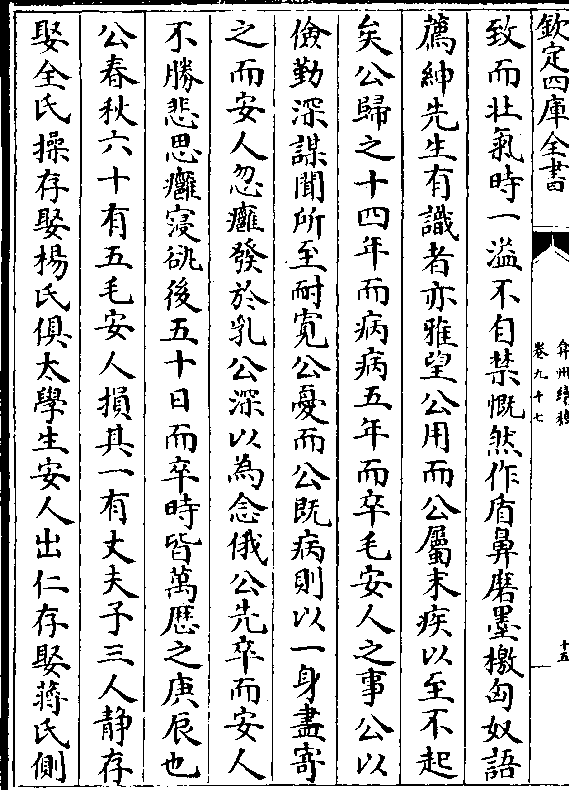 欽定四庫全書
弇州續稿
卷九十七
十五
致而壯氣時一溢不自禁慨然作盾鼻磨墨檄匈奴語
薦紳先生有識者亦雅望公用而公屬末疾以至不起
矣公歸之十四年而病病五年而卒毛安人之事公以
儉勤深謀聞所至耐寛公憂而公既病則以一身盡寄
之而安人忽癰發於乳公深以為念俄公先卒而安人
不勝悲思癰寖劇後五十日而卒時皆萬厯之庚辰也
公春秋六十有五毛安人損其一有丈夫子三人静存
娶全氏操存娶楊氏俱太學生安人出仁存娶蔣氏側